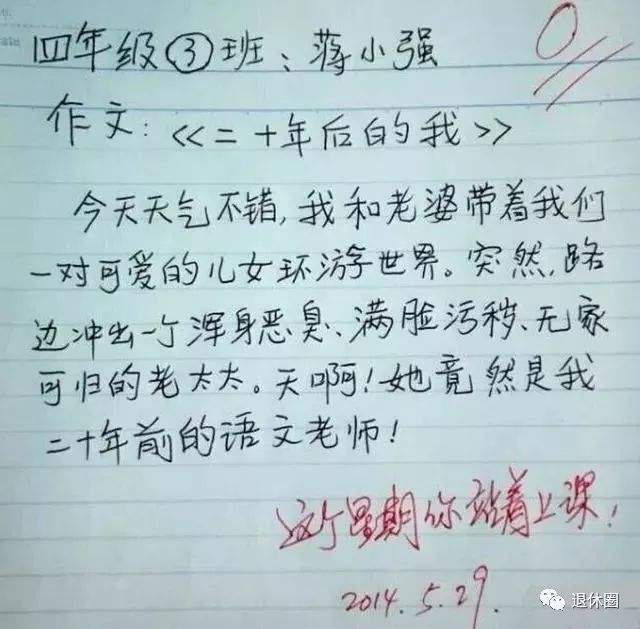 四年级③班:蒋小强
0
作文:<<二十年后的我>>
今天天气不错,我和老婆带着我们
一对可爱的儿女环游世界。突然,路
边冲出一个浑身恶臭、满脸污秽、无家
可归的老太太。天啊!她竟然是我
二十年前的语文老师!
这个星期你站着上课!
2014.5.29.
退休圈